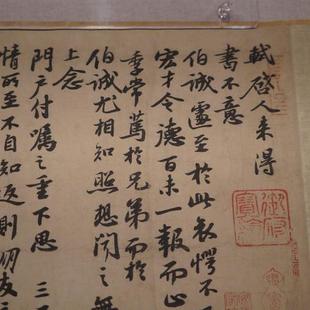 軾啓人來得
書不意
伯誠遽至於此哀愕不
宏才令德百未一報而止
季常篤於兄弟而於
伯誠尤相知照想聞之無
上念
門戶付囑之重下思三
情所至不自知返則朋友之